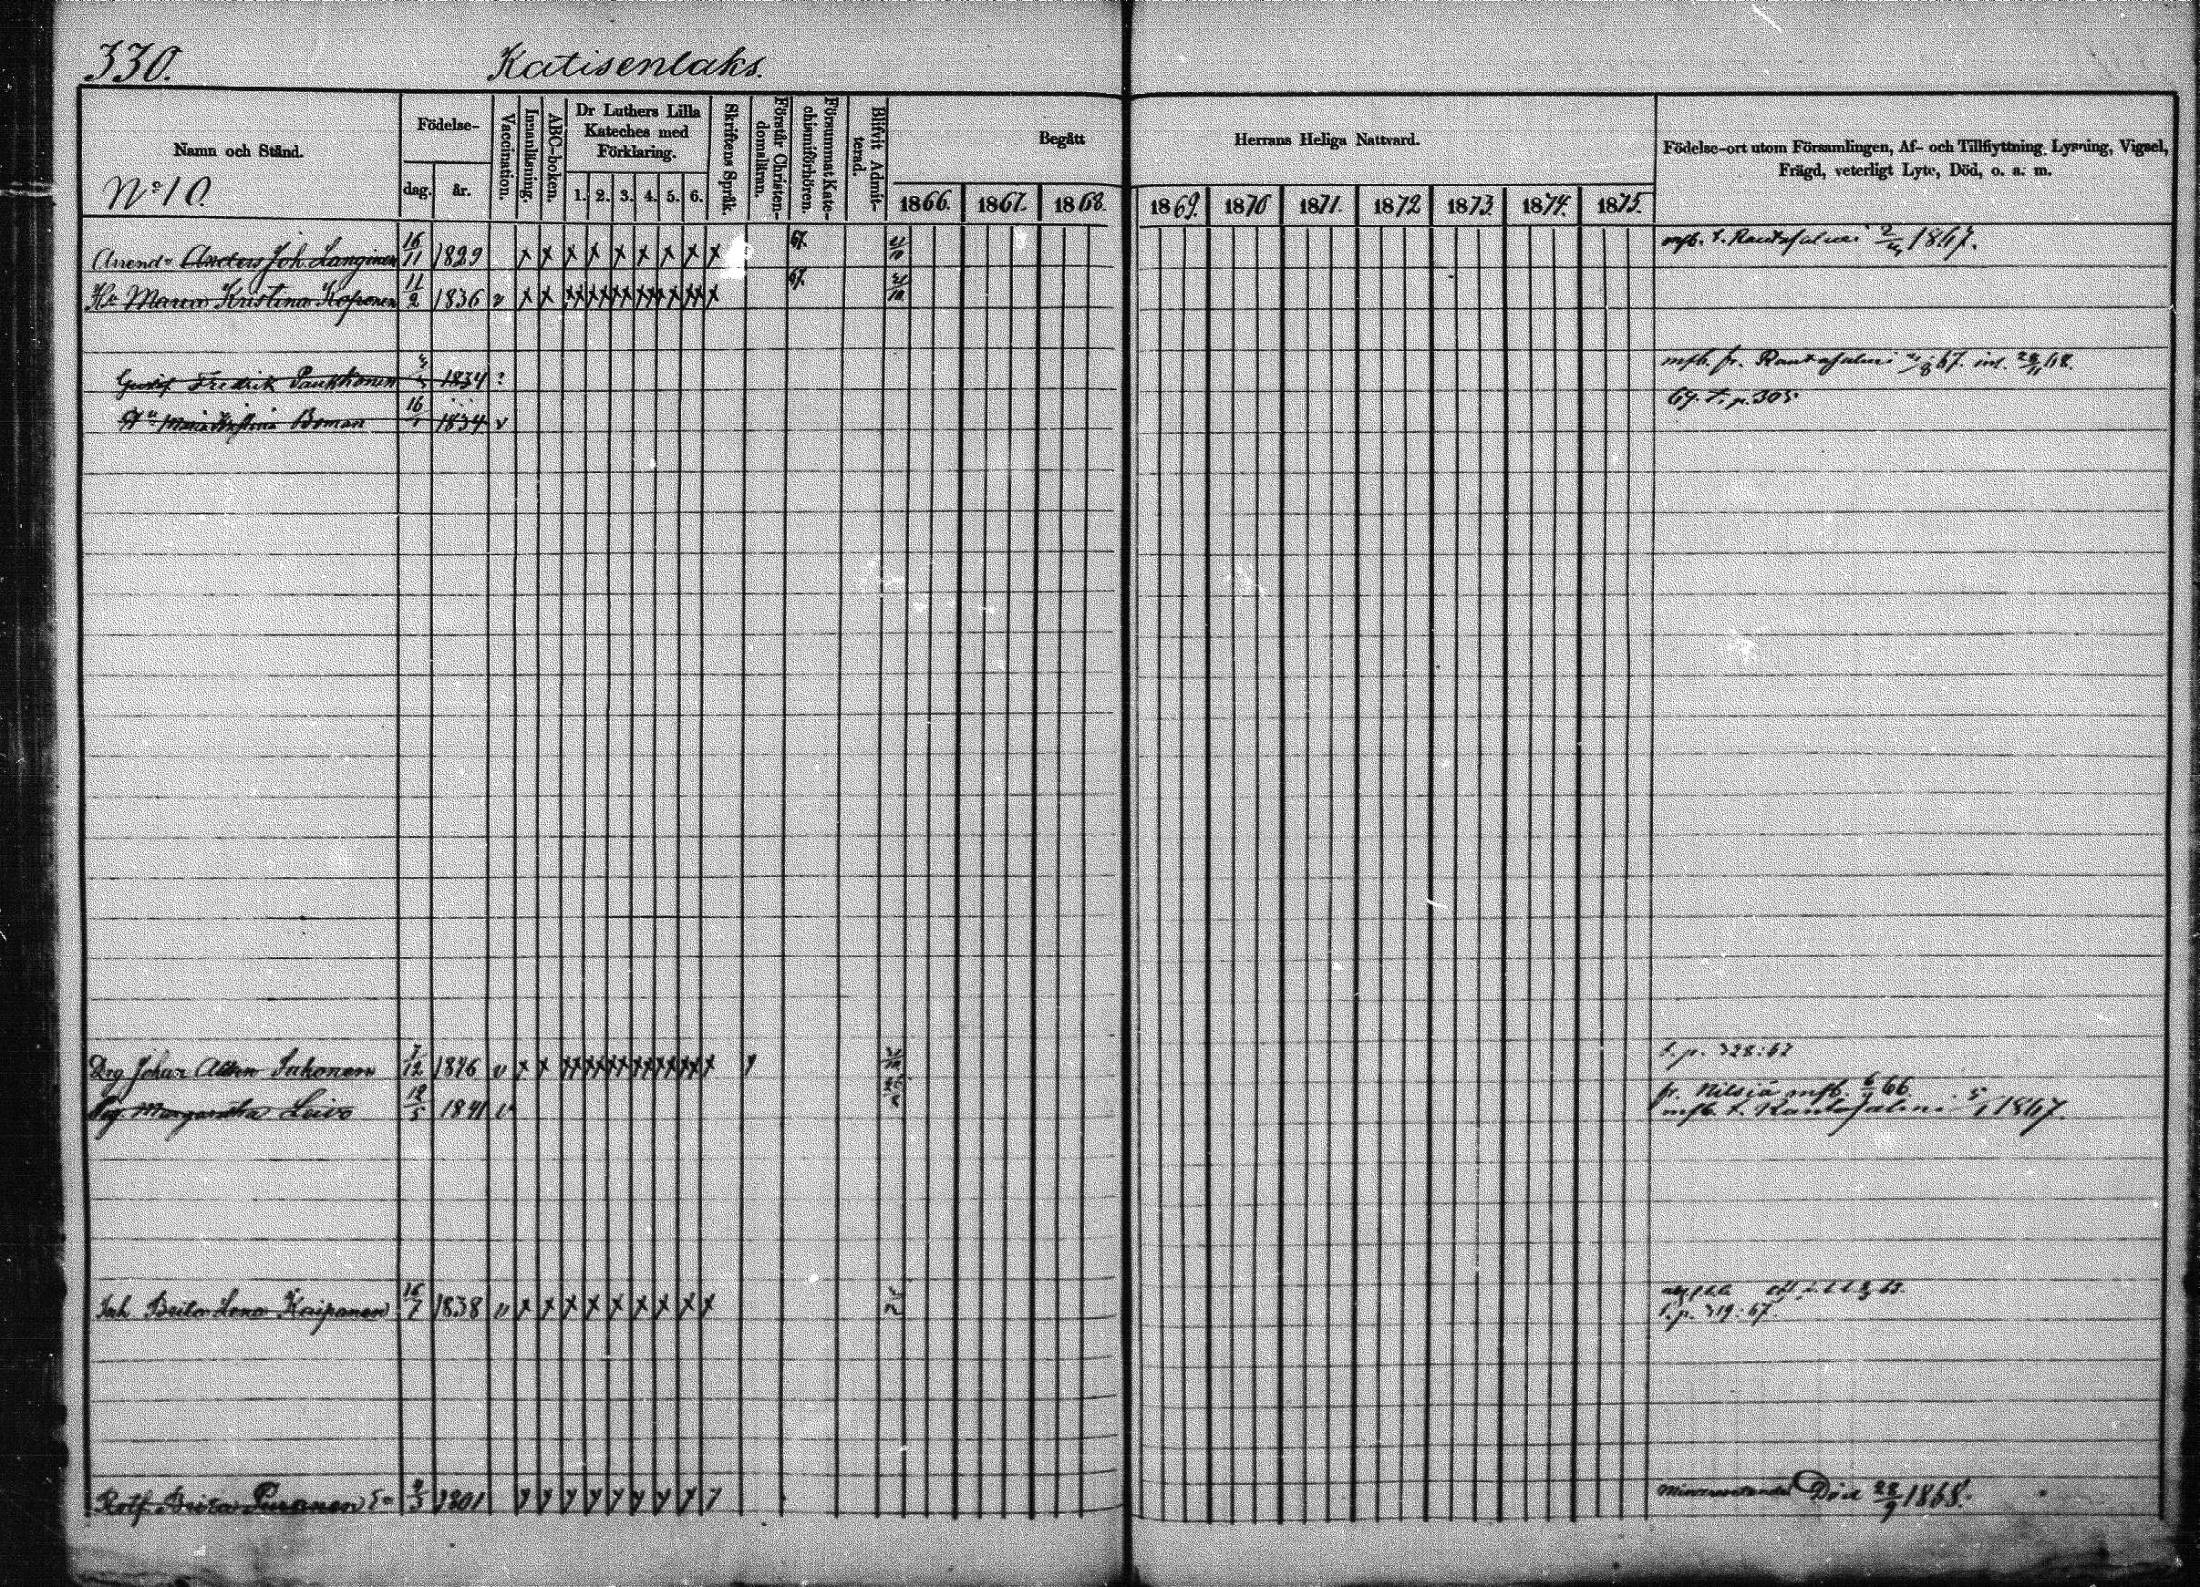 330. Katisenlaks.
Namn och Stånd.
No 10.
Födelse-
dag. år.
Vaccination.
Innanläsning.
ABC-boken.
Dr Luthers Lilla
Kateches med
Förklaring.
1. 2. 3. 4. 5. 6.
Skriftens Språk.
Förstår Christen-
domsläran.
Försummat Kate-
chismiförhören.
Blifvit Admit-
terad.
Begått Herrans Heliga Nattvard.
1866. 1867. 1868. 1869. 1870 1871. 1872 1873 1874. 1875.
Födelse-ort utom Församlingen, Af- och Tillflyttning. Lysning, Vigsel,
Frägd, veterligt Lyte, Död, o. a. m.
Anders Joh. Langinen 16/11 1829 x x x x x x x x x 67. mfb. t. Rantasalmi 1867.
Hu Maria Kristina Kaponen 11/2 1836 v x x xx xx xx xx xx x 67.
Gustaf Fredrik Paukkonen 1834 ? mfb. fr. Rantasalmi 67. inl. 68.
Hu Maria Kristina Boman 16 1834 v 69. t. p. 305.
Drg Johan Inhonen 7/12 1846 v x x xx xx xx xx xx xx x t. p. 328:67
Pig Margaretha Leivo 12/5 1841 v fr. Nilsiä mfb. 66
mfb. t. Rantasalmi 1867.
Inh Brita Lena Kaipanen 16/7 1838 v x x x x x x x x x
t. p. 319:67.
Rotf. Brita Puranen 2/3 1801 y y y y y y y y y Död 28/9 1868.